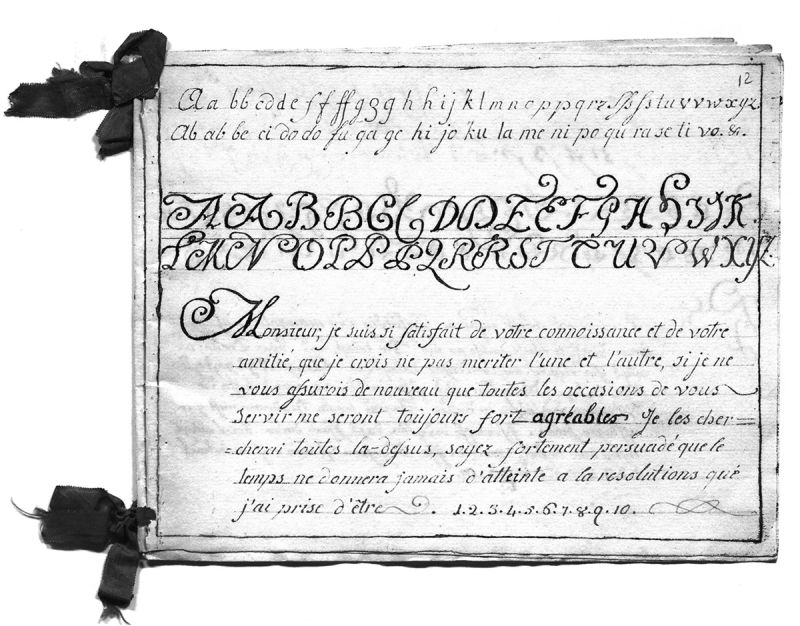 12
Aa bb cd de f f ff g g g h h i j k l m n o p p q r z ſſ ſs ſs t u v v w x y z
Ab ab be ci do do fu ga ge hi jo ku la me ni po qu ra se ti vo. &.
A A B B C C D D E E F F H H I J K
L M N O P P P Q R R S T T U V W X Y Z.
Monsieur, je suis si satisfait de votre connoissance et de votre
amitié, que je crois ne pas meriter l'une et l'autre, si je ne
vous assurois de nouveau que toutes les occasions de vous
servir me seront toujours fort agréables Je les cher=
=cherai toutes la=dessus, soyez fortement persuadé que le
temps ne donnera jamais d'atteinte a la resolutions que
j'ai prise d'être . 1. 2. 3. 4. 5. 6. 7. 8. 9. 10.